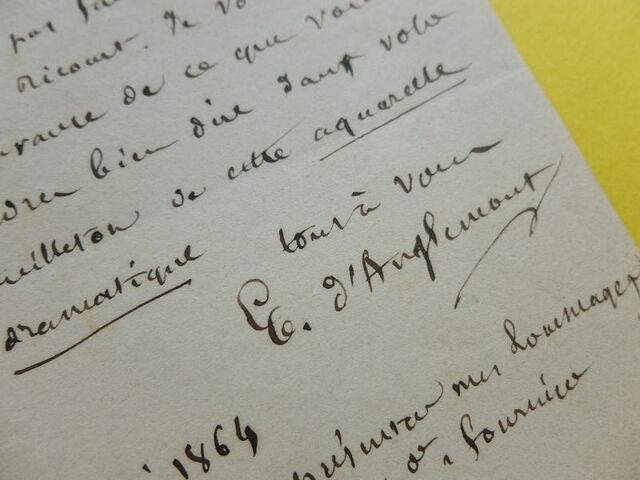 pas
ricourt. Je vo
de ce que vou
bien dire dans votre
uilleton de cette aquarelle
dramatique tout à vous
E. d'Anglemont
1864
présenter mes hommages